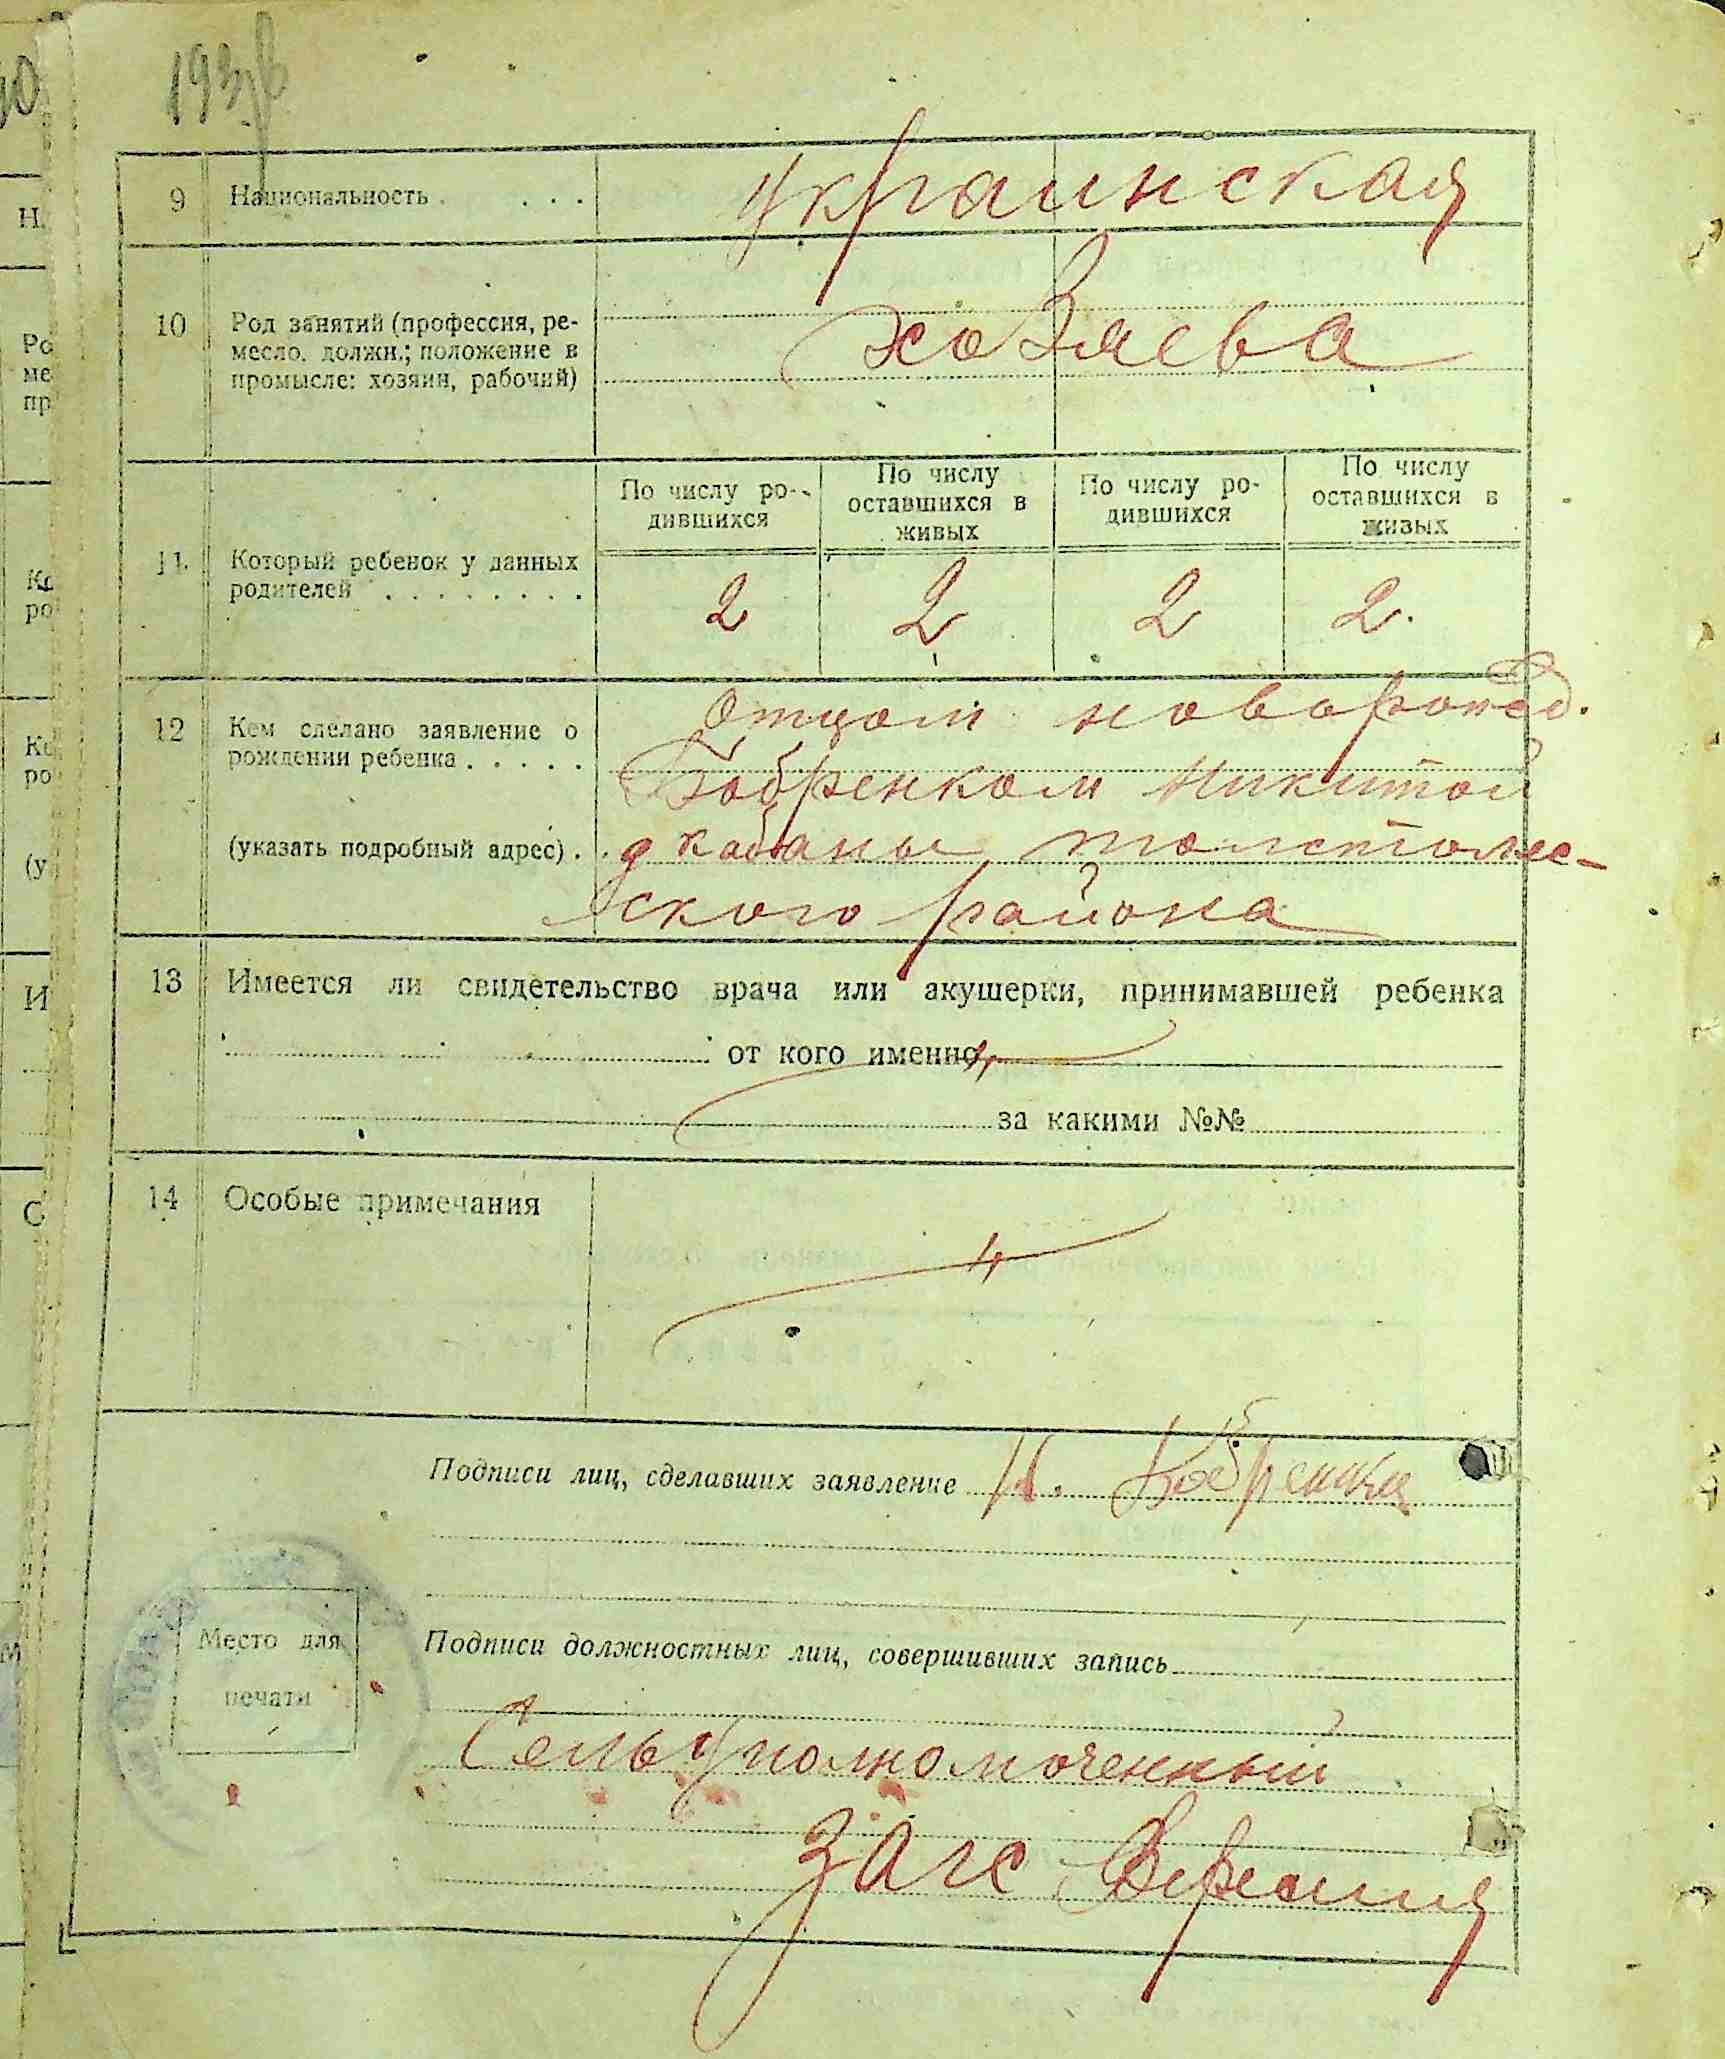 9 Национальность . . . . украинская
10 Род занятий (профессия, ре-
месло, должн.; положение в
промысле: хозяин, рабочий)
хозяева
По числу ро-
дившихся
По числу
оставшихся в
живых
По числу ро-
дившихся
По числу
оставшихся в
живых
11 Который ребенок у данных
родителей . . . . . . . .
2 2 2 2.
12 Кем сделано заявление о
рождении ребенка . . . . .
(указать подробный адрес) . .
Отцомναворожд.
Бобренком Никитой
д кабаны толстолес-
ского района
13 Имеется ли свидетельство врача или акушерки, принимавшей ребенка
от кого именно
за какими №№
14 Особые примечания
Подписи лиц, сделавших заявление Н. Бобренка
Место для
печати
Подписи должностных лиц, совершивших запись
Сельуполномоченный
Загс